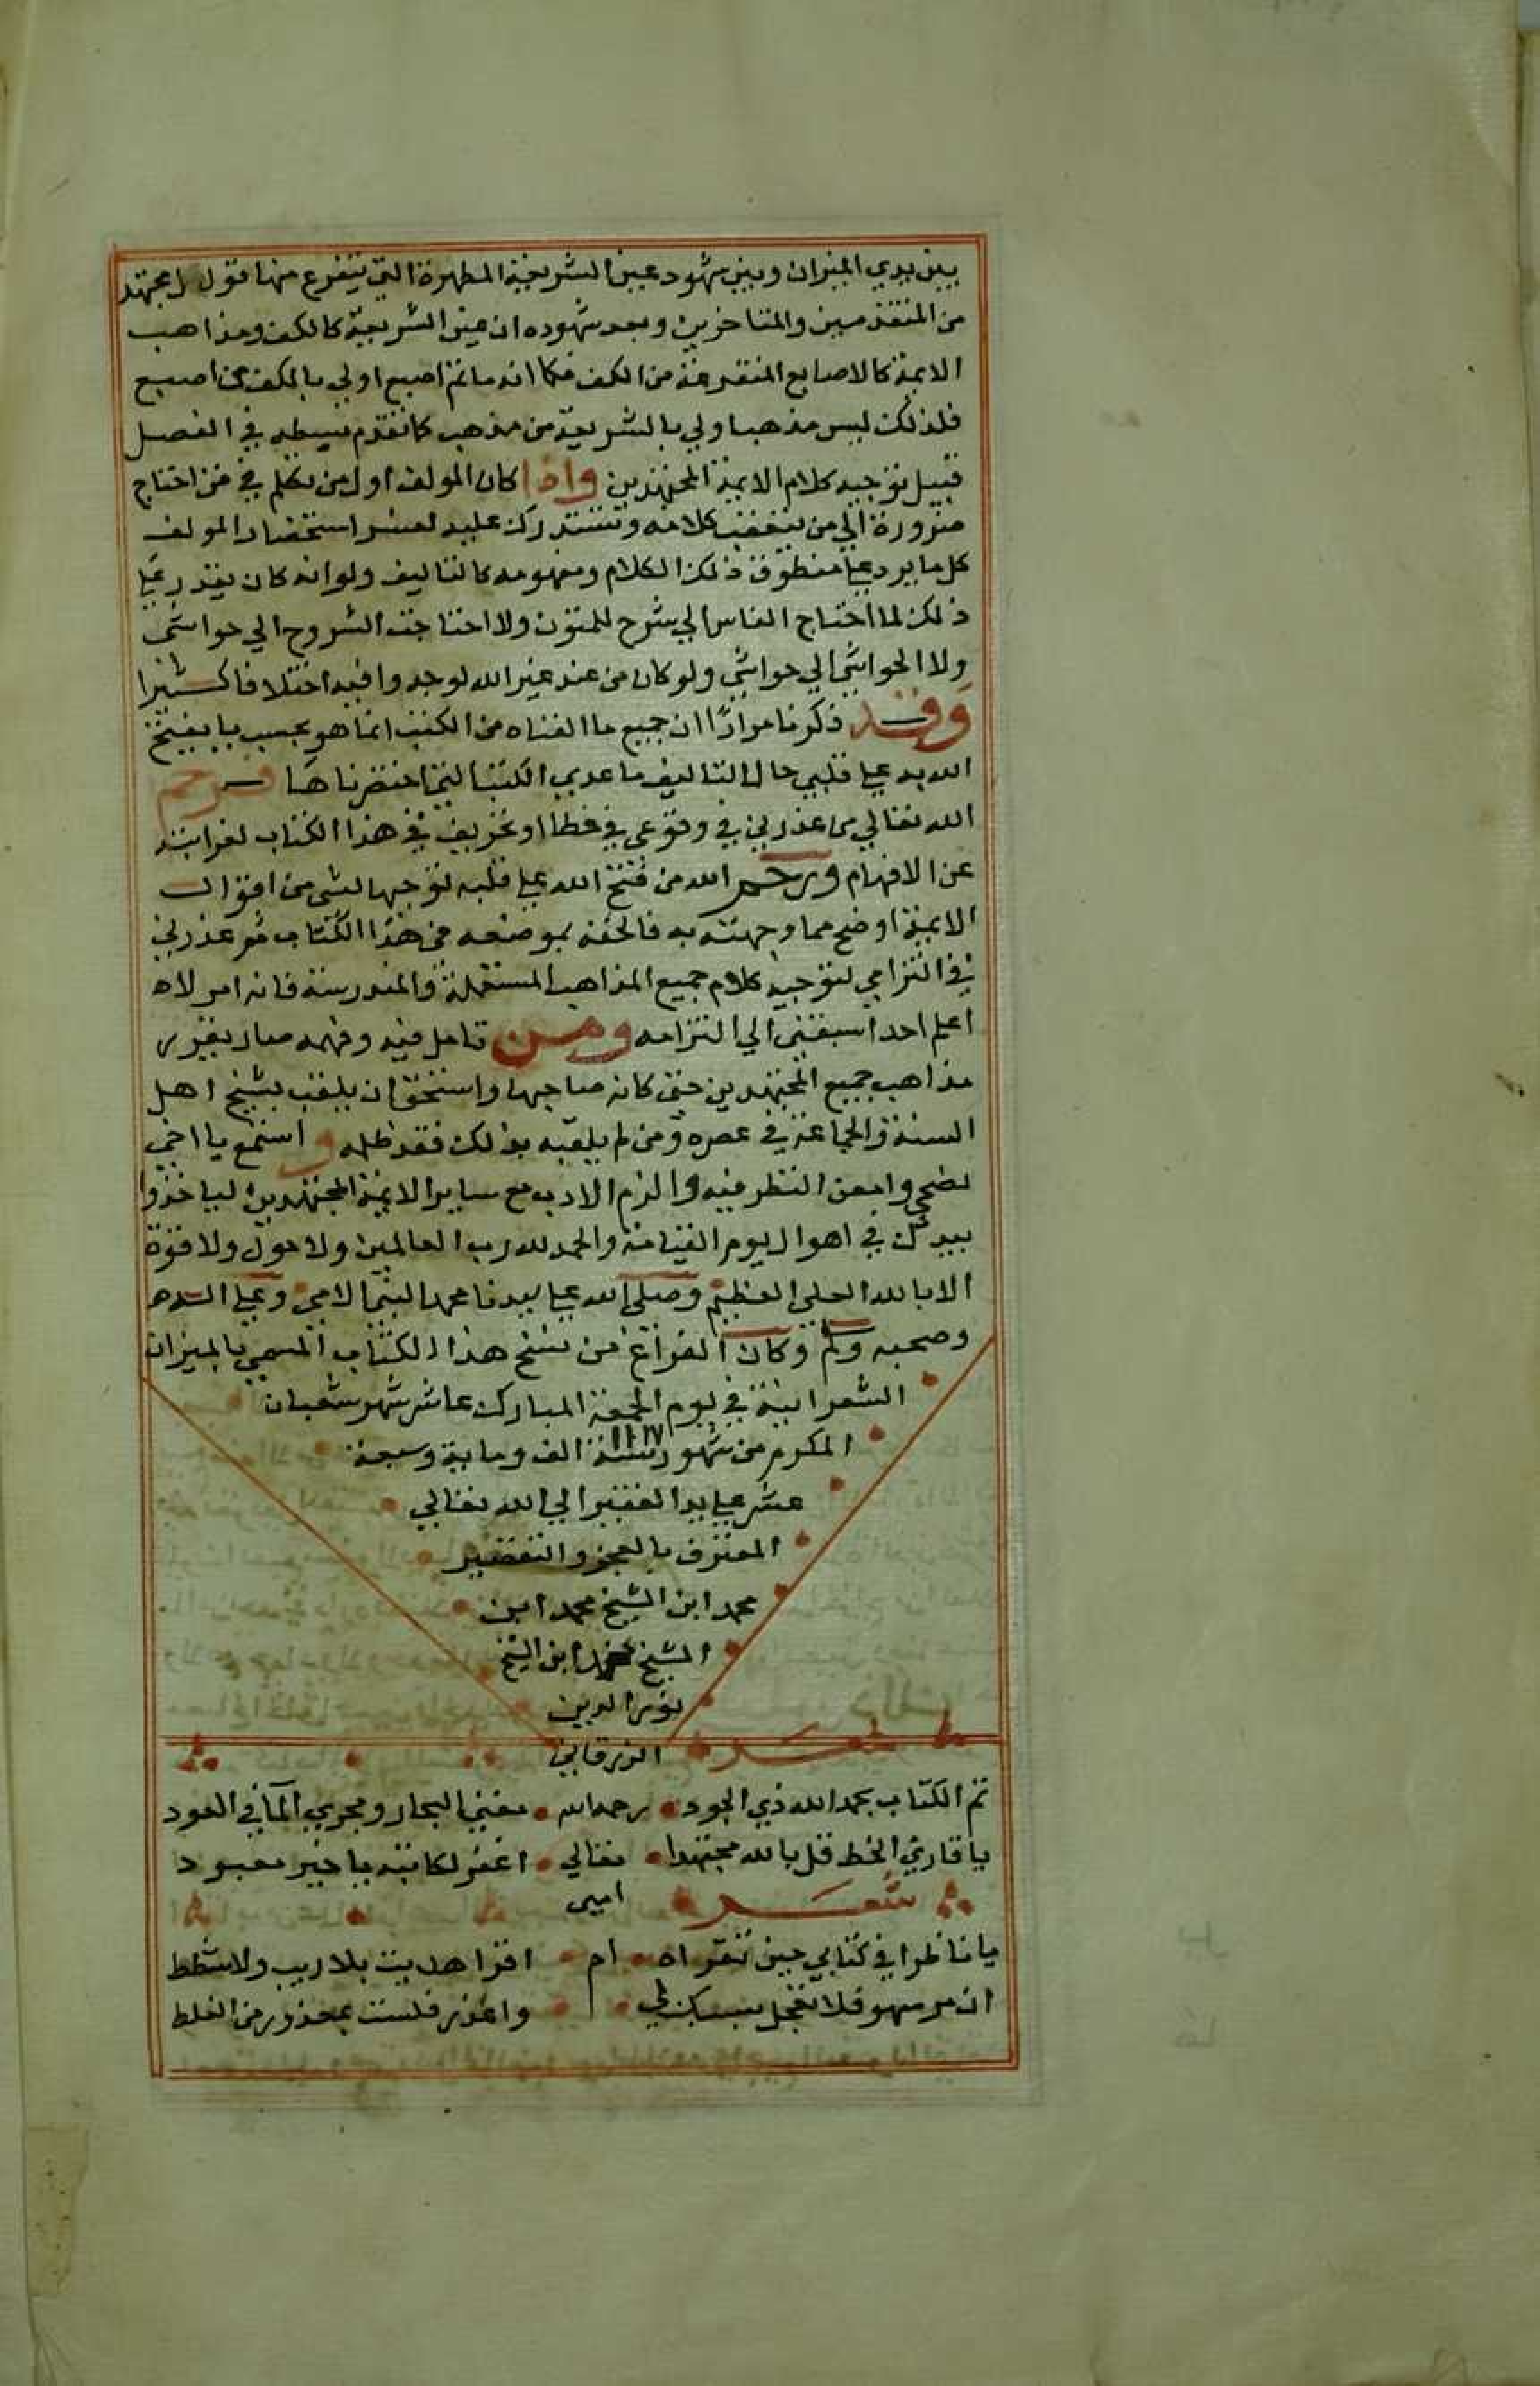 بين يدي الميزان وبين شهود عين الشريعة المطهرة التي يتفرع منها قول كل مجتهد
من المتقدمين والمتاخرين وبعد شهوده ان عين الشريعة كالكف ومذاهب
الايمة كالاصابع المتفرعة من الكف فكما انه ما ثم اصبع اولي بالكف من اصبع
فلذلك ليس مذهب اولي بالشريعة من مذهب كما تقدم بسطه في الفصل
قبيل توجيه كلام الايمة المجتهدين واذا كان المولف اول من تكلم في فن احتاج
ضرورة الي من يتعقب كلامه ويستدرك عليه لعسر استحضار المولف
كل ما يرد علي منطوق ذلك الكلام ومفهومه كالتاليف ولو انه كان يقدر علي
ذلك لما احتاج الناس الي شرح للمتون ولا احتاجت الشروح الي حواشي
ولا الحواشي الي حواشي ولو كان من عند غير الله لوجدوا فيه اختلافا كثيرا
وقد ذكرنا مرارًا ان جميع ما الفناه من الكتب انما هو بحسب ما يفتح
الله به علي قلبي حال التاليف ما عدي الكتب التي اختصرناها فرحم
الله تعالي من عذرني في وقوعي في خطا او تحريف في هذا الكتاب لغرابته
عن الافهام ورحم الله من فتح الله علي قلبه توجيها لشي من اقوال
الايمة اوضح مما وجهته به فالحقه بموضعه من هذا الكتاب ثم عذرني
في التزامي لتوجيه كلام جميع المذاهب المستعملة والمندرسة فانه امر لاه
اعلم احدا سبقني الي التزامه ومن تامل فيه وفهمه صار يقرر
مذاهب جميع المجتهدين حتي كانه صاحبها واستحق ان يلقب بشيخ اهل
السنة والجماعة في عصره ومن لم يلقبه بذلك فقد ظلمه و استمع يا اخي
لنصحي وامعن النظر فيه والزم الادب مع ساير الايمة المجتهدين لياخذوا
بيدك في اهوال يوم القيامة والحمد لله رب العالمين ولا حول ولا قوة
الا بالله العلي العظيم وصلي الله علي سيدنا محمد النبي الامي وعلي اله
وصحبه وسلم وكان الفراغ من نسخ هذا الكتاب المسمي بالميزان
الشعرانية في يوم الجمعة المبارك عاشر شهر شعبان
المكرم من شهور سنة ١١١٧ الف وماية وسبعة
عشر علي يد الفقير الي الله تعالي
المعترف بالعجز والتقصير
محمد ابن الشيخ محمد ابن
الشيخ محمد ابن الشيخ
نور الدين
الزرقاني
تم الكتاب بحمد الله ذي الجود رحمه الله مفني البحار ومجري المآ في العود
يا قاري الخط قل بالله مجتهدا تعالي اغفر لكاتبه يا خير معبود
شعر امين
يا ناظرا في كتابي حين تقراه ام اقرا هديت بلا ريب ولا شطط
ان مر سهو فلا تعجل بسبك لي واعذر فلست بمعذور من الغلط